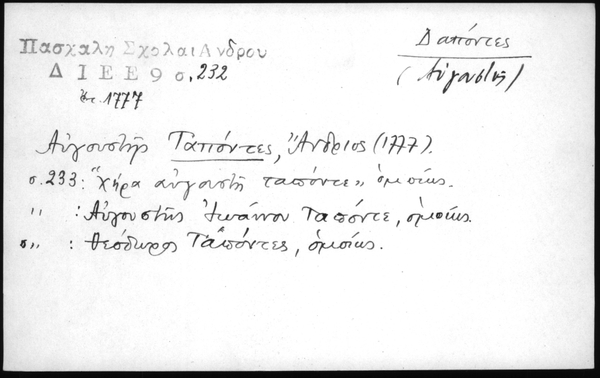 Πασχαλη Σχολαι Ανδρου
Δαπόντες
Δ Ι Ε Ε 9 σ. 232
(Αὐγουστῆς)
ἔτ. 1777
Αὐγουστῆς Ταπόντες, Ἄνδριος (1777).
σ. 233: "χήρα αὐγουστῆ ταπόντε» ὁμοίως.
" : Αὐγουστῆς Ἰωάννου Ταπόντε, ὁμοίως.
σ" : Θεόδωρος Ταπόντες, ὁμοίως.